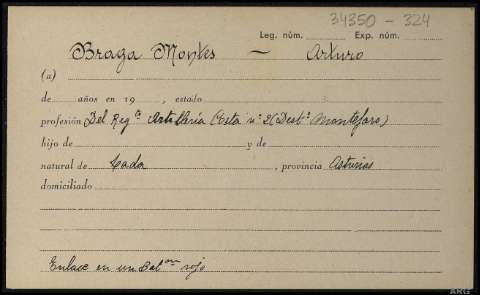 34350 - 324
Leg. núm. Exp. núm.
Braga Montes - Arturo
(a)
de años en 19 , estado
profesión Del Regº Artillería Costa nº 2 (Destº Monteforo)
hijo de y de
natural de Lada , provincia Asturias
domiciliado
Enlace en un Balón rojo
ARG